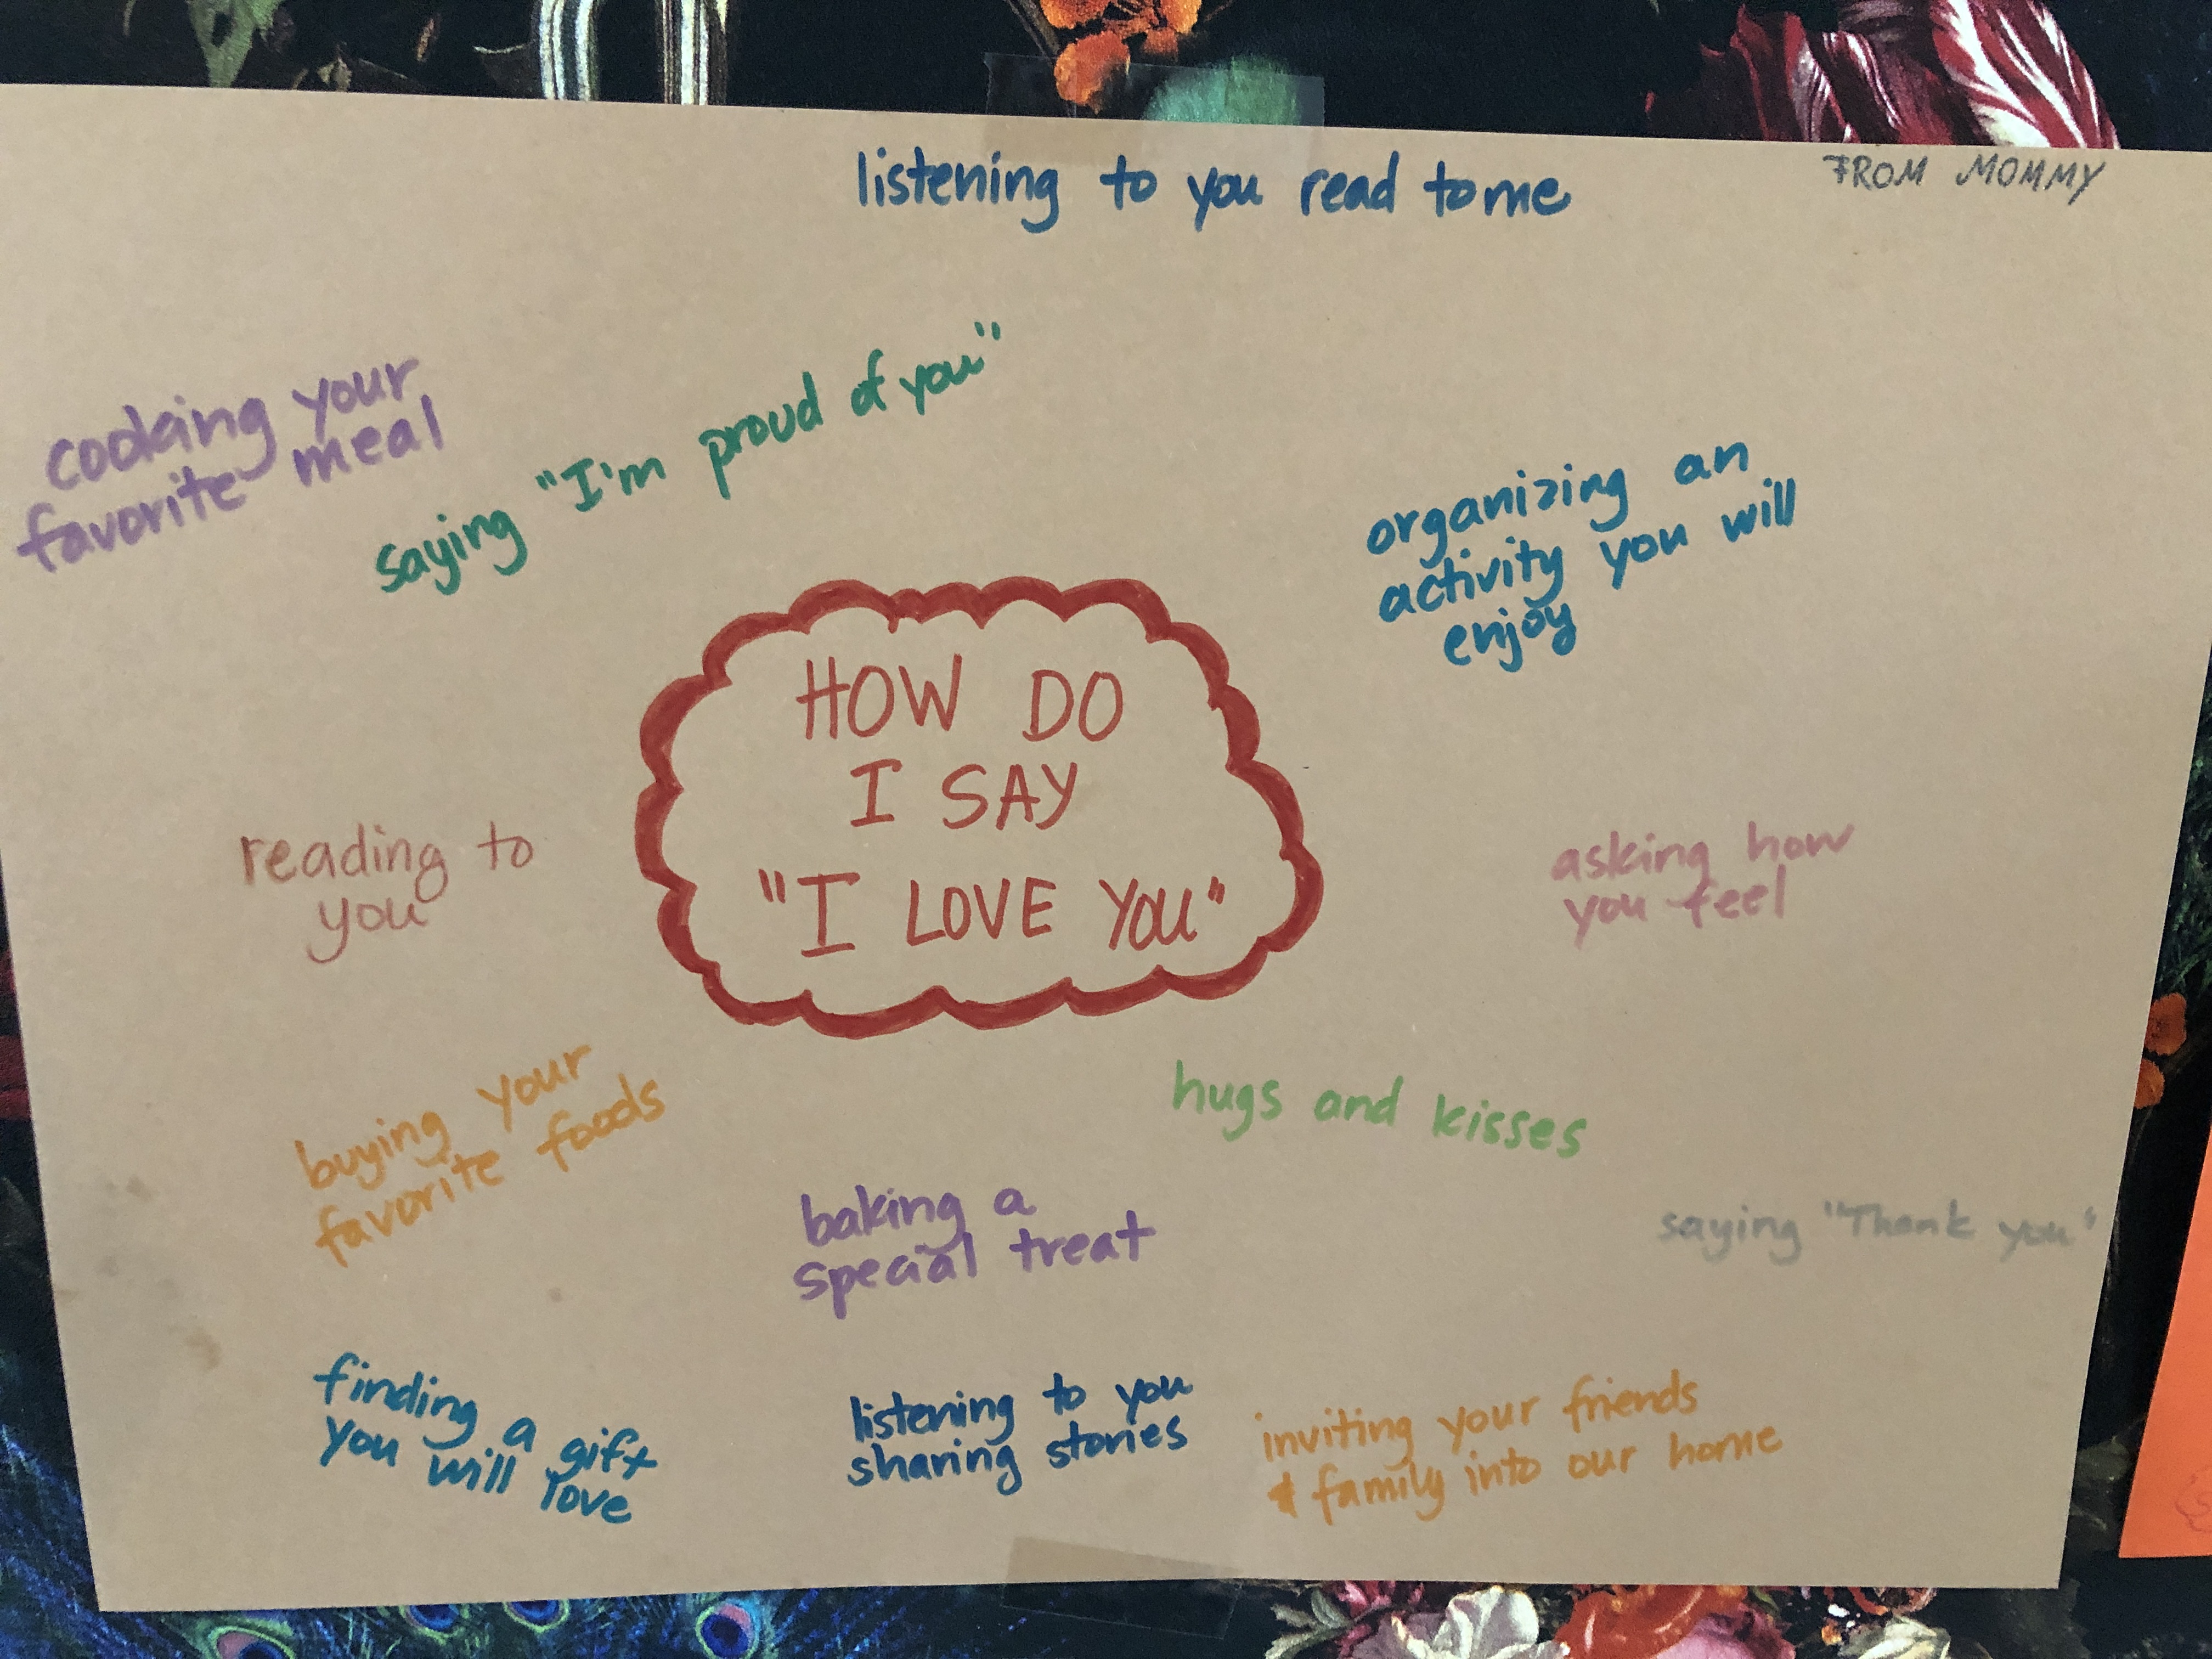 listening to you read to me
FROM MOMMY
cooking your
favorite meal
saying "I'm proud of you"
organizing an
activity you will
enjoy
HOW DO
I SAY
"I LOVE YOU"
reading to
you
asking how
you feel
buying your
favorite foods
hugs and kisses
baking a
special treat
saying "Thank you"
finding a gift
you will love
listening to you
sharing stories
inviting your friends
& family into our home